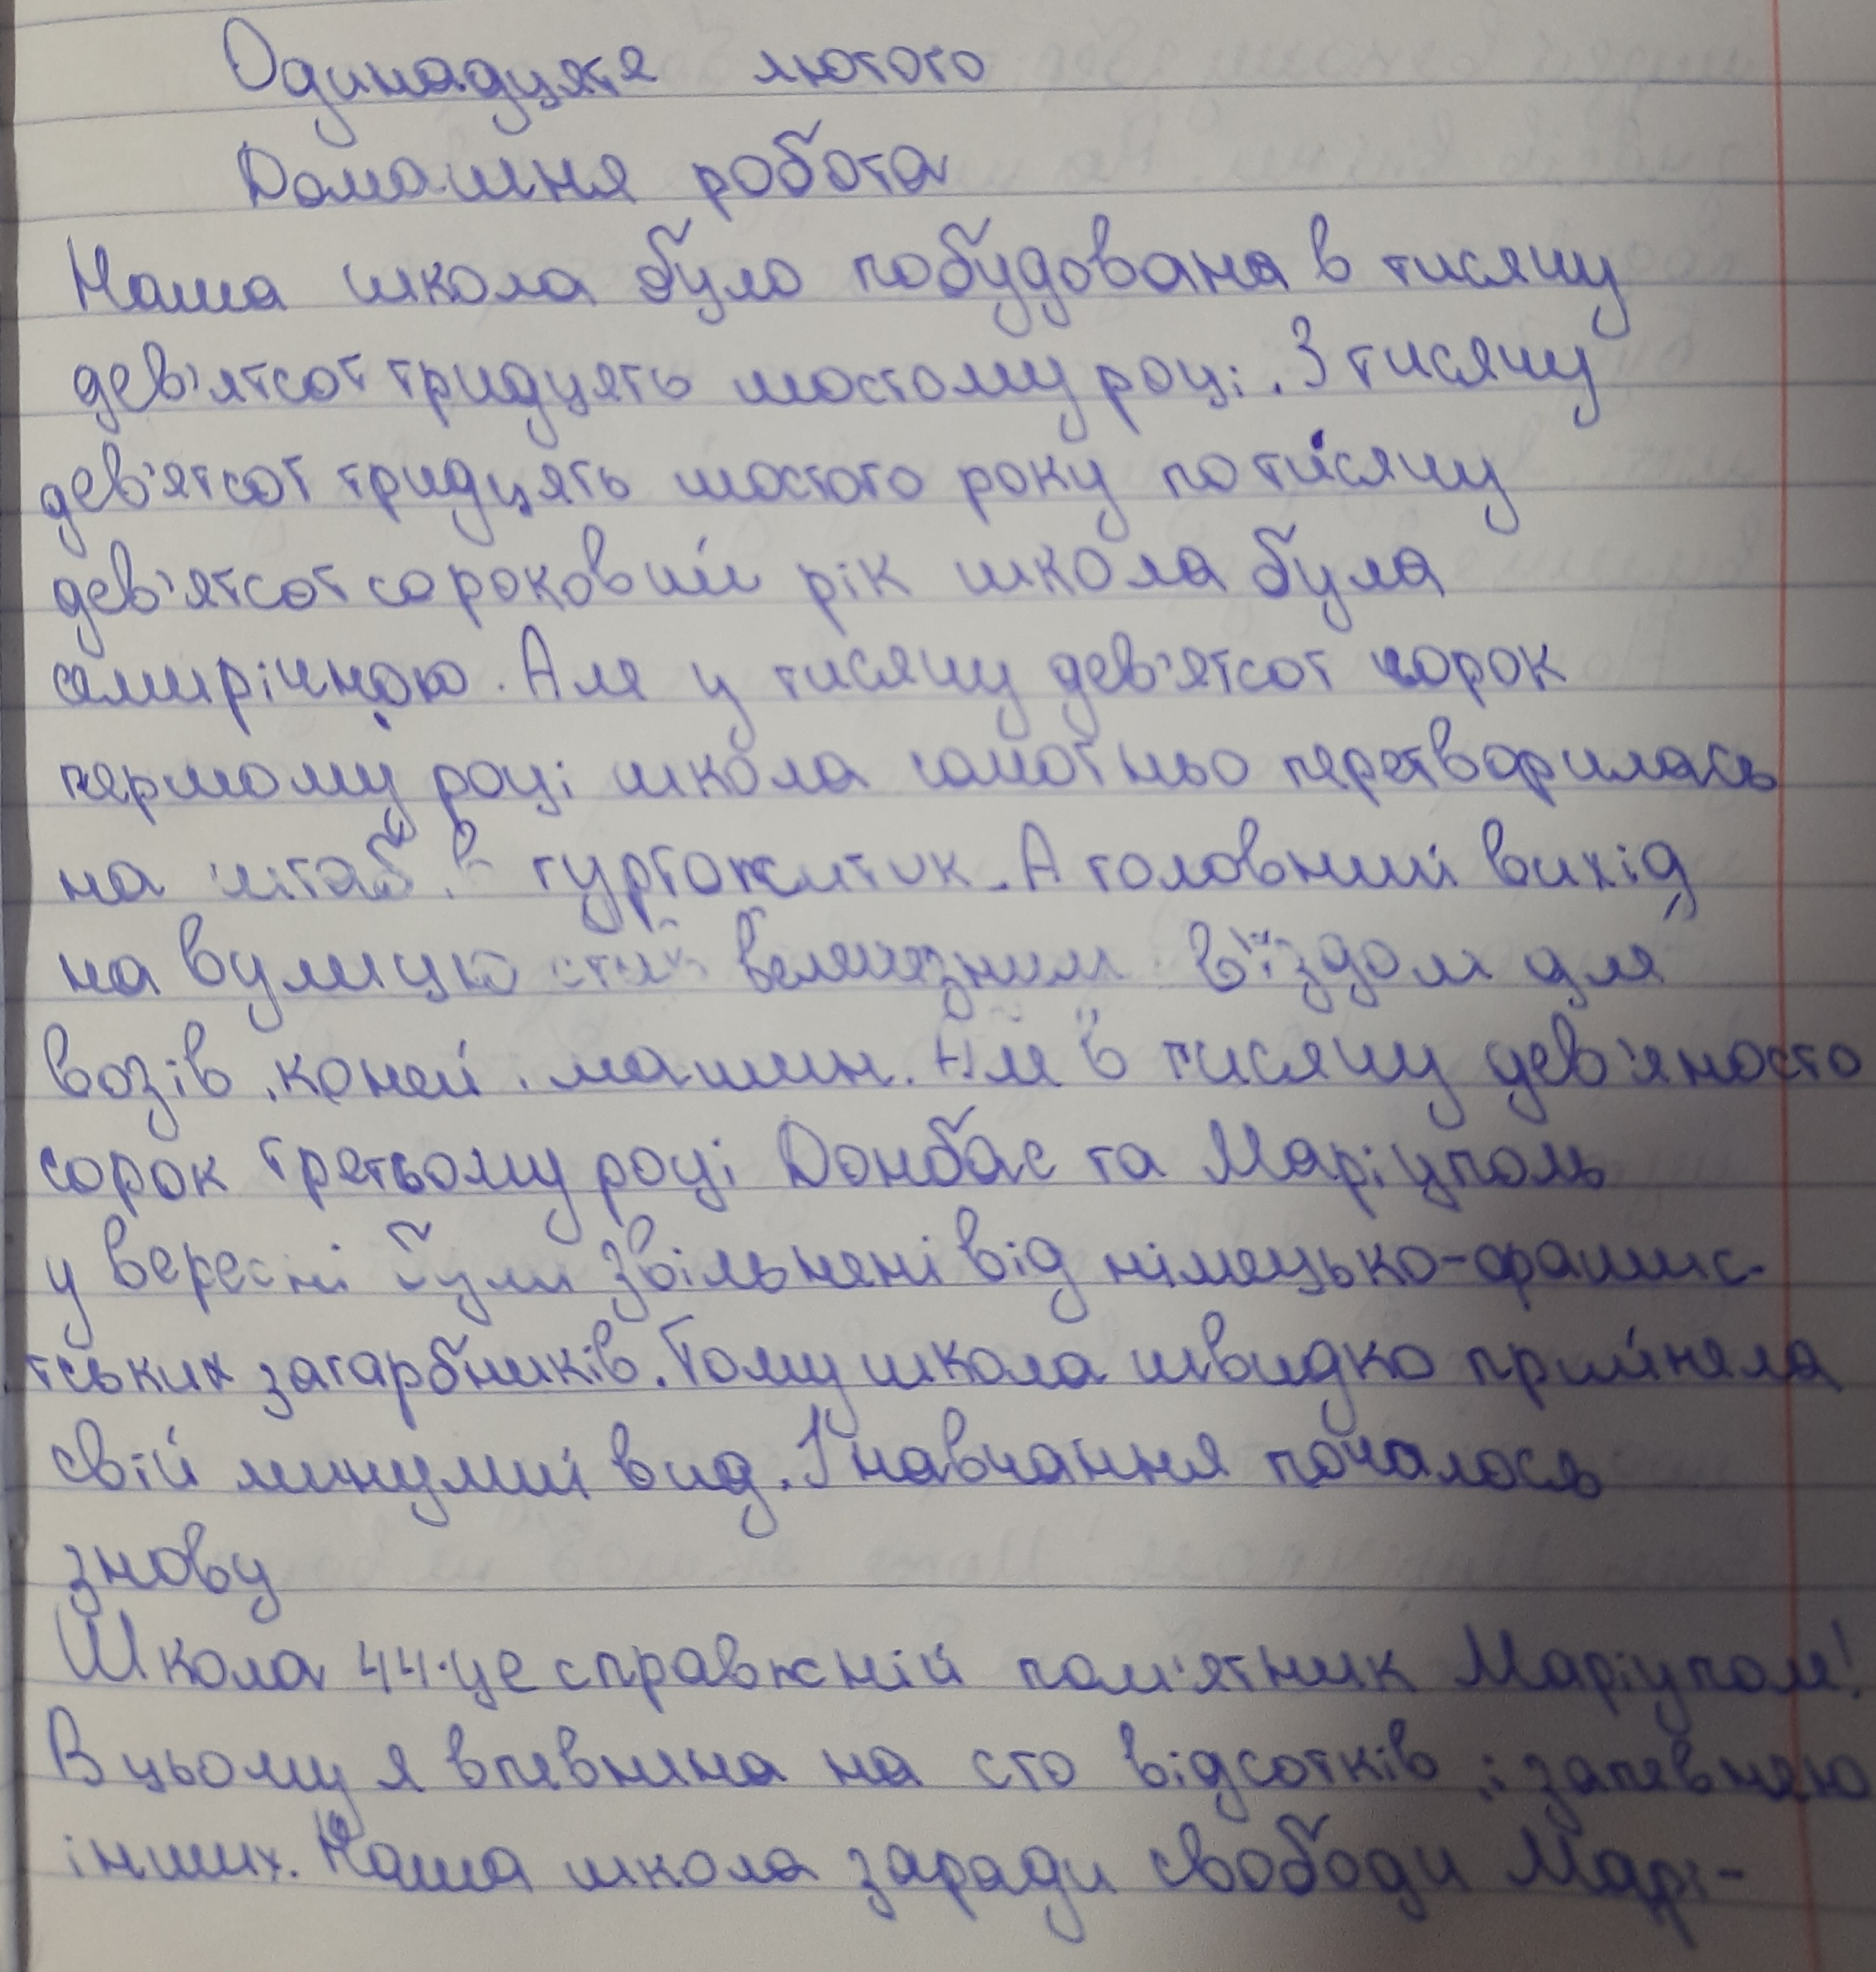 Одинадцяте лютого
Домашня робота
Наша школа було побудована в тисячу
дев'ятсот тридцять шостому році. З тисячу
дев'ятсот тридцять шостого року по тисячу
дев'ятсот сороковий рік школа була
семирічною. Але у тисячу дев'ятсот сорок
першому році школа самотньо перетворилась
на штаб в гуртожиток. А головний вихід
на вулицю величезним в'їздом для
возів, коней, машин. Але в тисячу дев'яносто
сорок третьому році Донбас та Маріуполь
у вересні були звільнені від німецько-фашис-
тських загарбників. Тому школа швидко прийняла
свій минулий вид. І навчання почалось
знову
Школа 44-це справжній пам'ятник Маріуполя!
В цьому я впевнена на сто відсотків, і запевняю
інших. Наша школа заради свободи Марі-